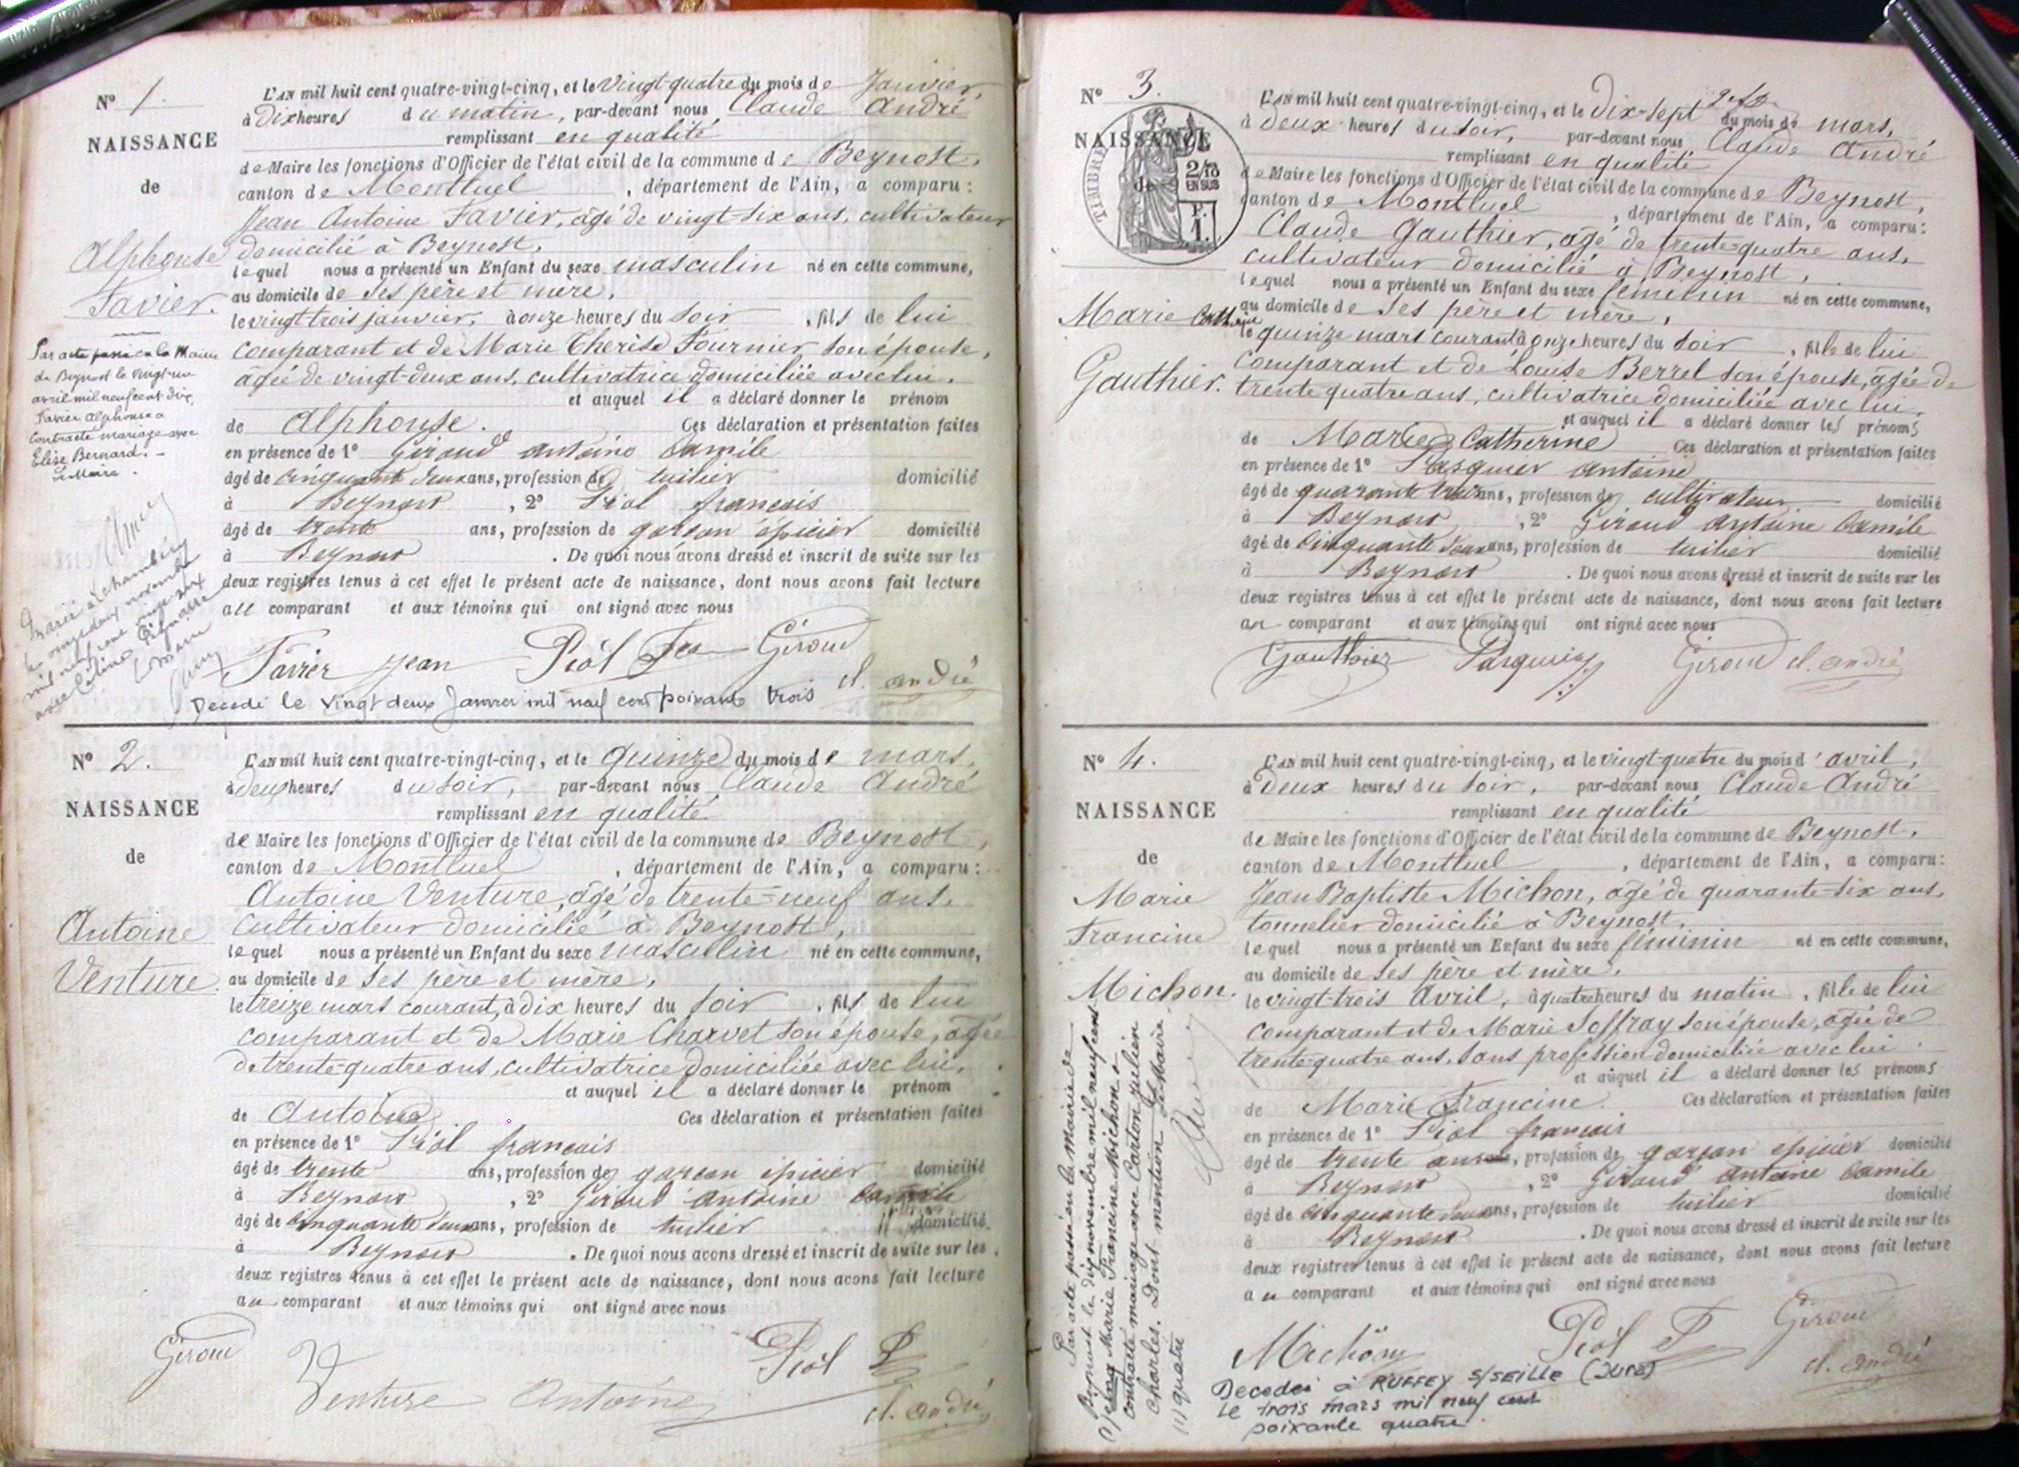 N° 1.
NAISSANCE
de
Alphonse
Favier.
Par acte passé en la Mairie
de Beynost le vingt-un
avril mil neuf cent dix,
Favier Alphonse a
contracté mariage avec
Elise Bernard. -
Le Maire.
Marié à Chambéry
le vingt deux novembre
mil neuf cent vingt six
avec
L'AN mil huit cent quatre-vingt-cinq, et le vingt-quatre du mois de Janvier,
à dix heures du matin, par-devant nous Claude André
remplissant en qualité
de Maire les fonctions d'Officier de l'état civil de la commune de Beynost,
canton de Montluel, département de l'Ain, a comparu:
Jean Antoine Favier, âgé de vingt-six ans, cultivateur
domicilié à Beynost,
lequel nous a présenté un Enfant du sexe masculin né en cette commune,
au domicile de ses père et mère,
le vingt trois janvier, à onze heures du soir, fils de lui
comparant et de Marie Thérèse Fournier son épouse,
âgée de vingt-deux ans, cultivatrice domiciliée avec lui.
et auquel il a déclaré donner le prénom
de Alphonse. Ces déclaration et présentation faites
en présence de 1° Giroud antoine Camile
âgé de cinquante deux ans, profession de tuilier domicilié
à Beynost, 2° Piol francois
âgé de trente ans, profession de garson épicier domicilié
à Beynost. De quoi nous avons dressé et inscrit de suite sur les
deux registres tenus à cet effet le présent acte de naissance, dont nous avons fait lecture
au comparant et aux témoins qui ont signé avec nous
Favier jean Piol fcs Giroud
cl. andré
Decedé le vingt deux Janvier mil neuf cent soixante trois
N° 2.
NAISSANCE
de
Antoine
Venture.
L'AN mil huit cent quatre-vingt-cinq, et le quinze du mois de mars,
à deux heures du soir, par-devant nous Claude André
remplissant en qualité
de Maire les fonctions d'Officier de l'état civil de la commune de Beynost,
canton de Montluel, département de l'Ain, a comparu:
Antoine Venture, âgé de trente-neuf ans,
cultivateur domicilié à Beynost,
lequel nous a présenté un Enfant du sexe masculin né en cette commune,
au domicile de ses père et mère,
le treize mars courant, à dix heures du soir, fils de lui
comparant et de Marie Charvet son épouse, âgée
de trente-quatre ans, cultivatrice domiciliée avec lui.
et auquel il a déclaré donner le prénom
de Antoine Ces déclaration et présentation faites
en présence de 1° Piol francois
âgé de trente ans, profession de garson épicier domicilié
à Beynost, 2° Giroud antoine Camile
âgé de cinquante deux ans, profession de tuilier domicilié
à Beynost. De quoi nous avons dressé et inscrit de suite sur les
deux registres tenus à cet effet le présent acte de naissance, dont nous avons fait lecture
au comparant et aux témoins qui ont signé avec nous
Giroud
Venture Antoine
Piol F
cl. andré
N° 3.
TIMBRE
2/10
EN SUS
NAISSANCE
de
Marie Catherine
Gauthier.
L'AN mil huit cent quatre-vingt-cinq, et le dix-sept du mois de mars,
à deux heures du soir, par-devant nous Claude André
remplissant en qualité
de Maire les fonctions d'Officier de l'état civil de la commune de Beynost,
canton de Montluel, département de l'Ain, a comparu:
Claude Gauthier, âgé de trente-quatre ans,
cultivateur domicilié à Beynost,
lequel nous a présenté un Enfant du sexe féminin né en cette commune,
au domicile de ses père et mère,
le quinze mars courant à onze heures du soir, fille de lui
comparant et de Louise Berrel son épouse, âgée de
trente quatre ans, cultivatrice domiciliée avec lui.
et auquel il a déclaré donner les prénoms
de Marie Catherine Ces déclaration et présentation faites
en présence de 1° Pasquier antoine
âgé de quarante trois ans, profession de cultivateur domicilié
à Beynost, 2° Giroud antoine Camile
âgé de cinquante deux ans, profession de tuilier domicilié
à Beynost. De quoi nous avons dressé et inscrit de suite sur les
deux registres tenus à cet effet le présent acte de naissance, dont nous avons fait lecture
au comparant et aux témoins qui ont signé avec nous
Gauthier Pasquier Giroud cl. andré
N° 4.
NAISSANCE
de
Marie
Francine
Michon.
Par acte passé en la Mairie de
Beynost le dix novembre mil neuf cent
Marie Francine Michon a
contracté mariage avec Caston Julien
Charles. Dont mention Le Maire,
quatre
L'AN mil huit cent quatre-vingt-cinq, et le vingt-quatre du mois d'avril,
à deux heures du soir, par-devant nous Claude André
remplissant en qualité
de Maire les fonctions d'Officier de l'état civil de la commune de Beynost,
canton de Montluel, département de l'Ain, a comparu:
Jean Baptiste Michon, âgé de quarante-six ans,
tonnelier domicilié à Beynost,
lequel nous a présenté un Enfant du sexe féminin né en cette commune,
au domicile de ses père et mère,
le vingt-trois Avril, à quatre heures du matin, fille de lui
comparant et de Marie Joffray son épouse, âgée de
trente-quatre ans, sans profession domiciliée avec lui.
et auquel il a déclaré donner les prénoms
de Marie Francine. Ces déclaration et présentation faites
en présence de 1° Piol francois
âgé de trente ans, profession de garson epicier domicilié
à Beynost, 2° Giroud antoine Camile
âgé de cinquante deux ans, profession de tuilier domicilié
à Beynost. De quoi nous avons dressé et inscrit de suite sur les
deux registres tenus à cet effet le présent acte de naissance, dont nous avons fait lecture
au comparant et aux témoins qui ont signé avec nous
Michon Piol F Giroud
cl. andré
Decedée à RUFFEY S/SEILLE (JURA)
Le trois mars mil neuf cent
soixante quatre